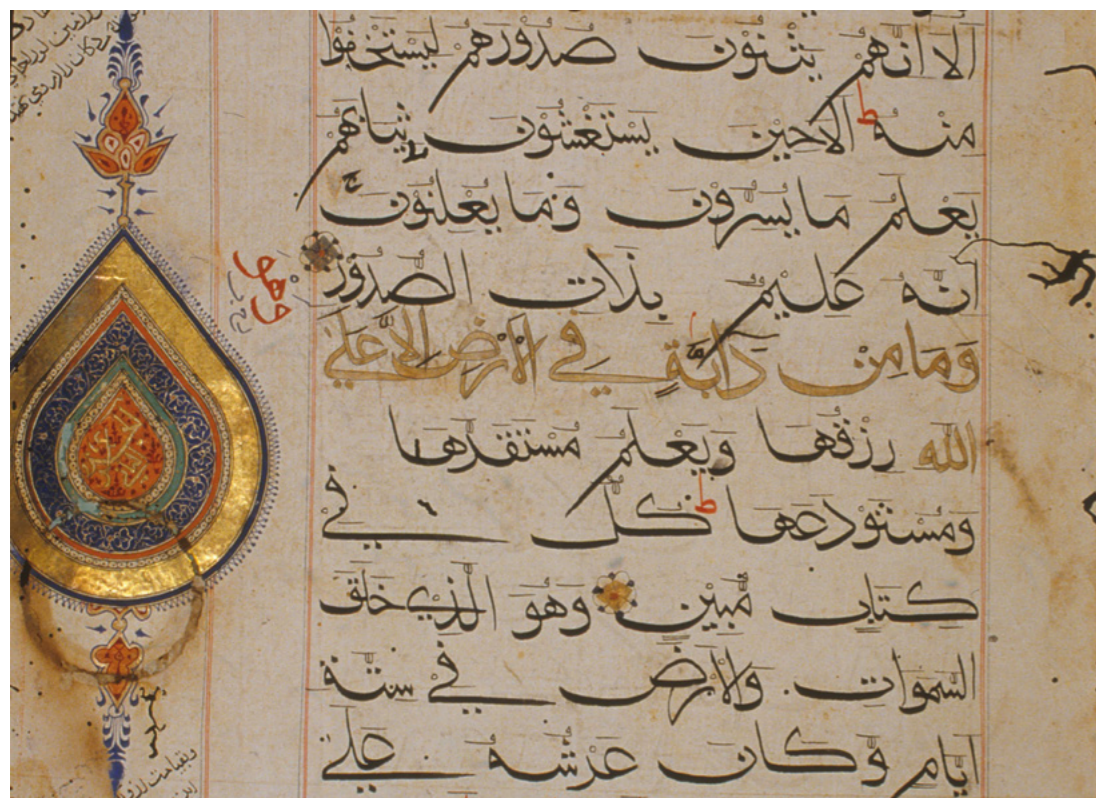 الا انهم يثنون صدورهم ليستخفوا
منه ط الا حين يستغشون ثيابهم
يعلم ما يسرون وما يعلنون ج
انه عليم بذات الصدور
وما من دابة في الارض الا على
الله رزقها ويعلم مستقرها
ومستودعها ط كل في
كتاب مبين وهو الذي خلق
السموات والارض في ستة
ايام وكان عرشه على